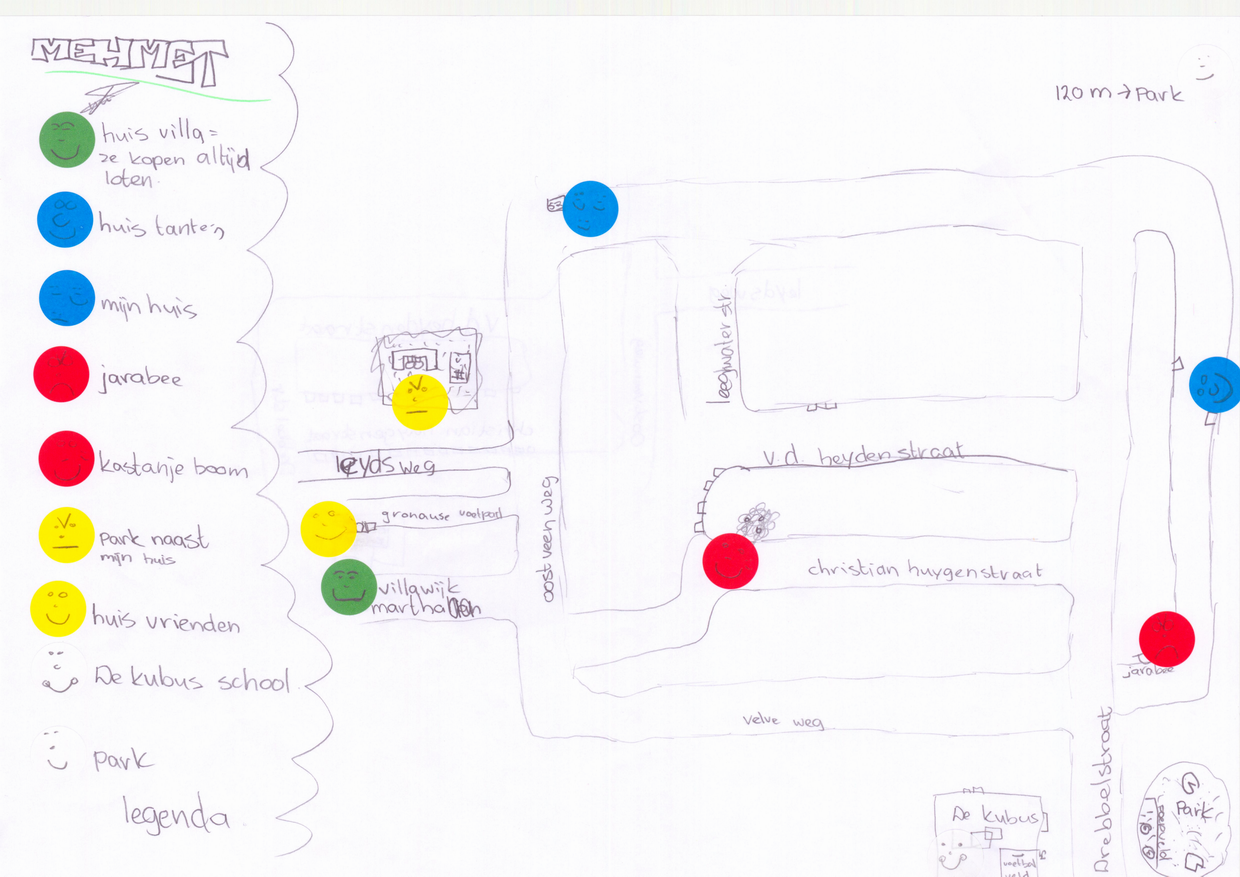 MEHMET
huis villa =
ze kopen altijd
loten.
huis tante's
mijn huis
jarabee
kastanje boom
park naast
mijn huis
huis vrienden
De kubus school
park
legenda
120 m → park
leeghwater str
leyds weg
v.d. heyden straat
gronause voetpad
oost veen weg
villawijk
marthalaan
christian huygenstraat
jarabee
velve weg
Drebbelstraat
De kubus
voetbal
veld
Park